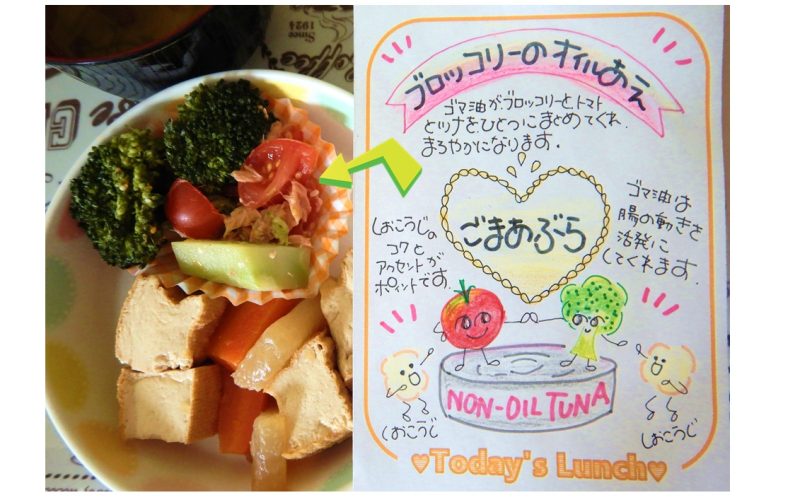 Since
1924
Coffee
ブロッコリーのオイルあえ
ゴマ油がブロッコリーとトマト
とツナをひとつにまとめてくれ
まろやかになります.
ごまあぶら
ゴマ油は
腸の動きを
活発に
してくれます.
しおこうじの
コクと
アクセントが
ポイントです.
NON-OIL TUNA
しおこうじ
しおこうじ
♥Today's Lunch♥